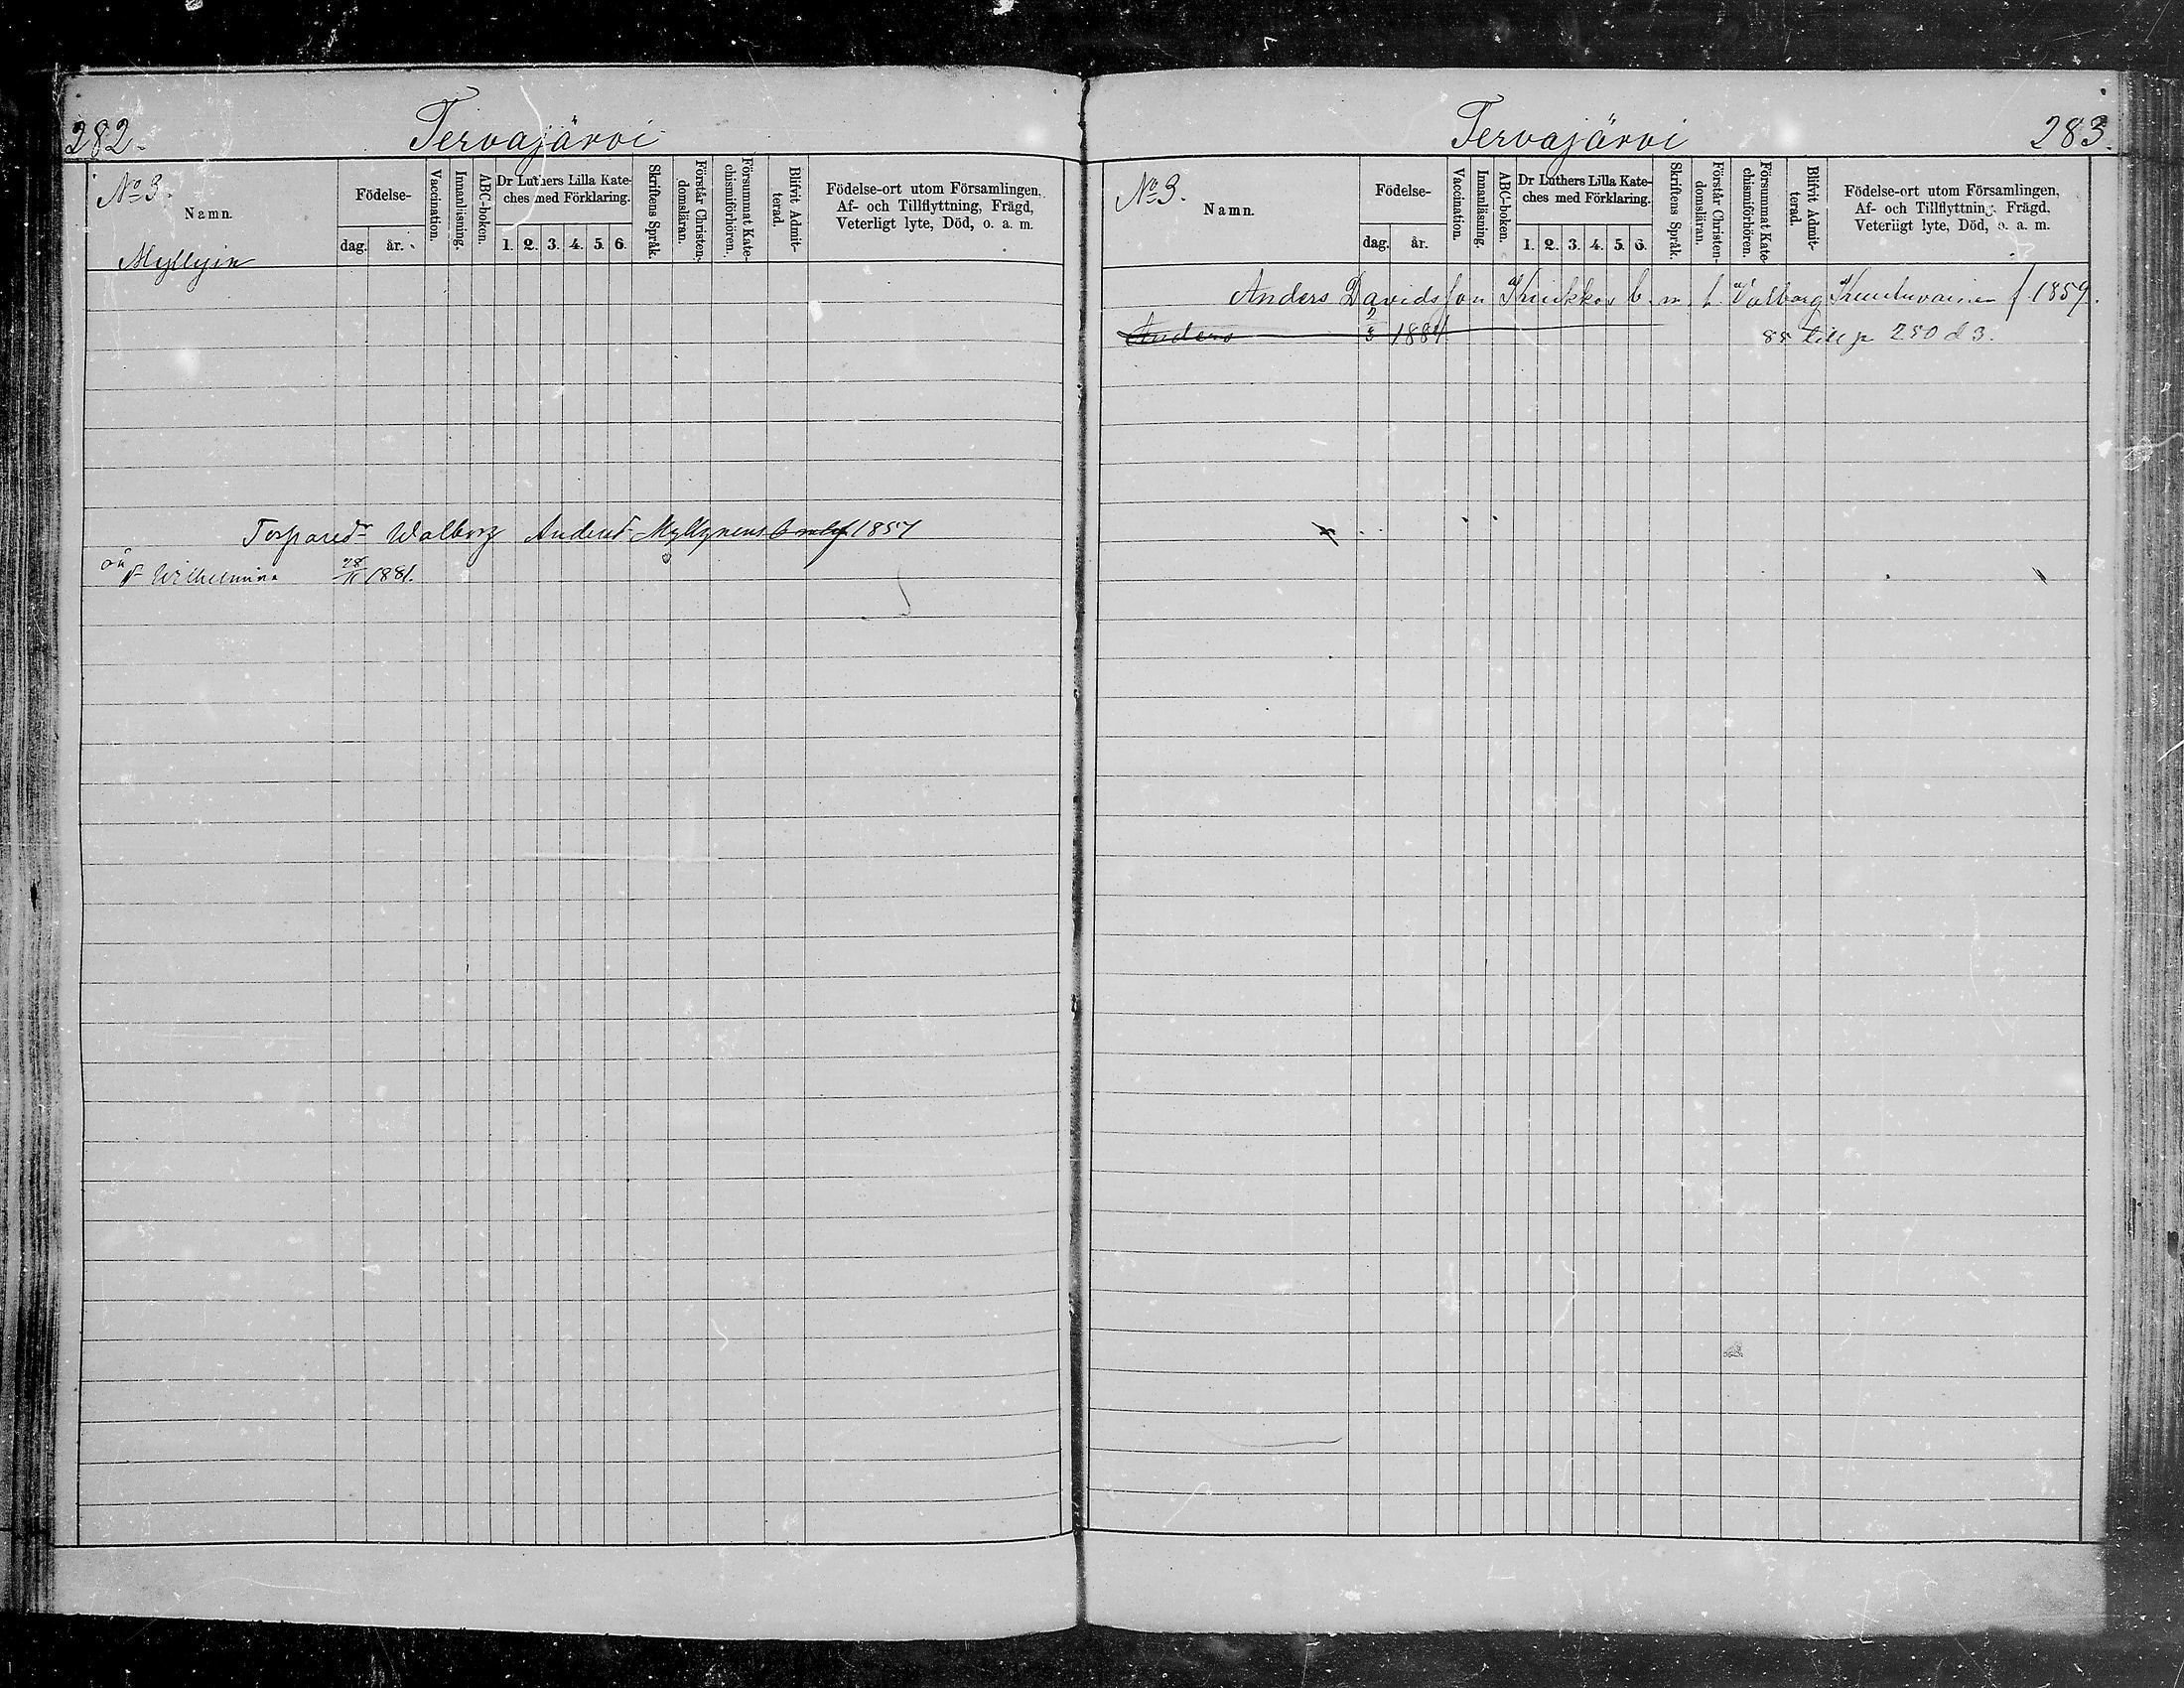 282.
Tervajärvi
No 3.
Namn.
Födelse-
dag.
år.
Vaccination.
Innanläsning.
ABC-boken.
Dr Luthers Lilla Kate-
ches med Förklaring.
1. 2. 3. 4. 5. 6.
Skriftens Språk.
Förstår Christen-
domsläran.
Försummat Kate-
chismiförhören.
Blifvit Admit-
terad.
Födelse-ort utom Församlingen.
Af- och Tillflyttning, Frägd,
Veterligt lyte, Död, o. a. m.
Myllyin
Walborg Andersd 1857
Wilhelmina 28/11 1881.
Tervajärvi
283.
No 3.
Namn.
Födelse-
dag.
år.
Vaccination.
Innanläsning.
ABC-boken.
Dr Luthers Lilla Kate-
ches med Förklaring.
1. 2. 3. 4. 5. 6.
Skriftens Språk.
Förstår Christen-
domsläran.
Försummat Kate-
chismiförhören.
Blifvit Admit-
terad.
Födelse-ort utom Församlingen,
Af- och Tillflyttning, Frägd.
Veterligt lyte, Död, o. a. m.
Anders Davidsson b. m. h. Valborg f. 1859.
Anders 1884 85 till p 250 d 3.